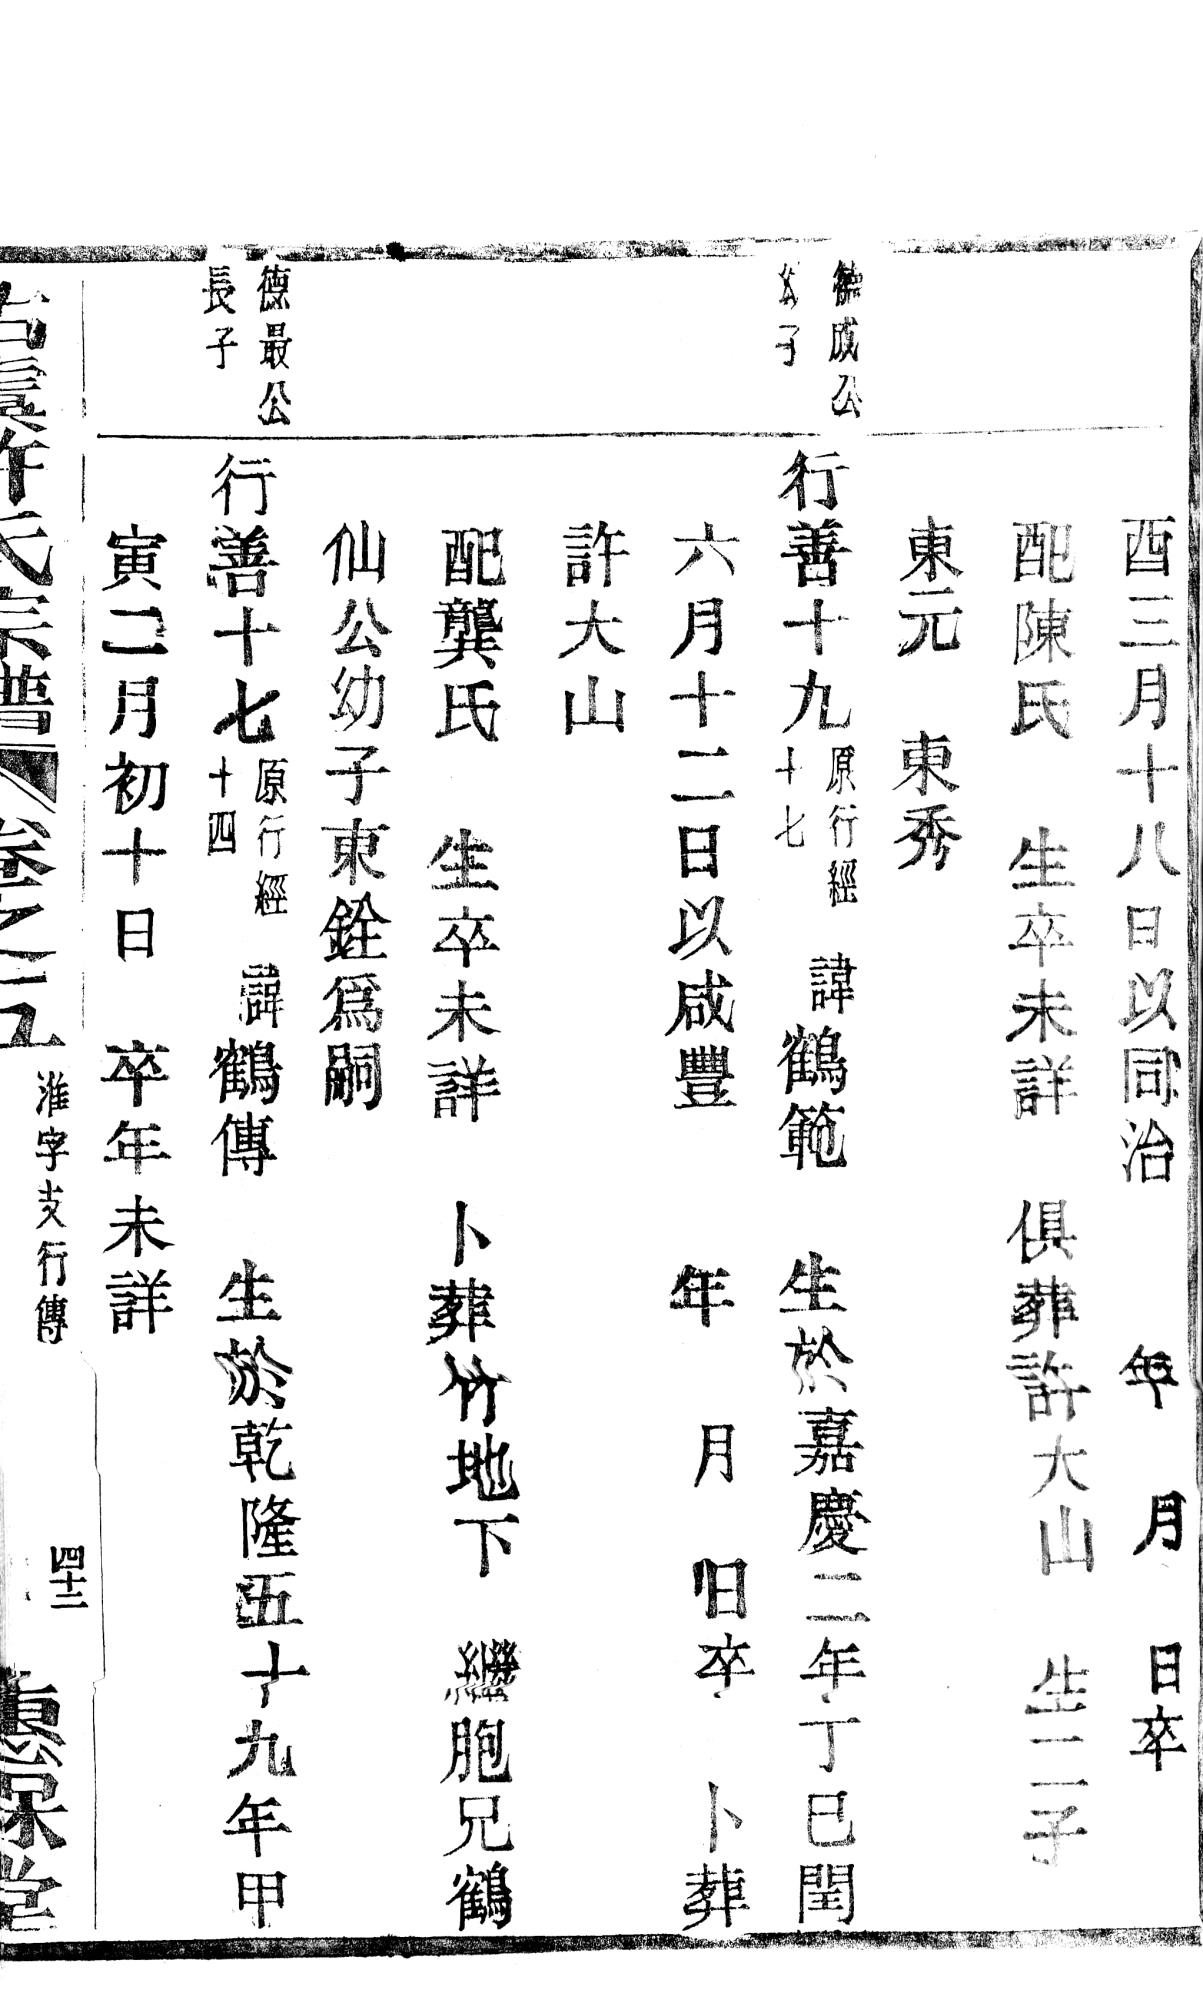 酉三月十八日以同治　年　月　日卒
配陳氏　生卒未詳　俱葬許大山　生二子
東元　東秀
德成公
幼子
行善十九
原行經
十七
諱鶴範　生於嘉慶二年丁巳閏
六月十二日以咸豐　年　月　日卒　卜葬
許大山
配龔氏　生卒未詳　卜葬竹地下　繼胞兄鶴
仙公幼子東銓爲嗣
德最公
長子
行善十七
原行經
十四
諱鶴傳　生於乾隆五十九年甲
寅二月初十日　卒年未詳
古虞許氏宗譜　卷之五　淮字支行傳　四十二